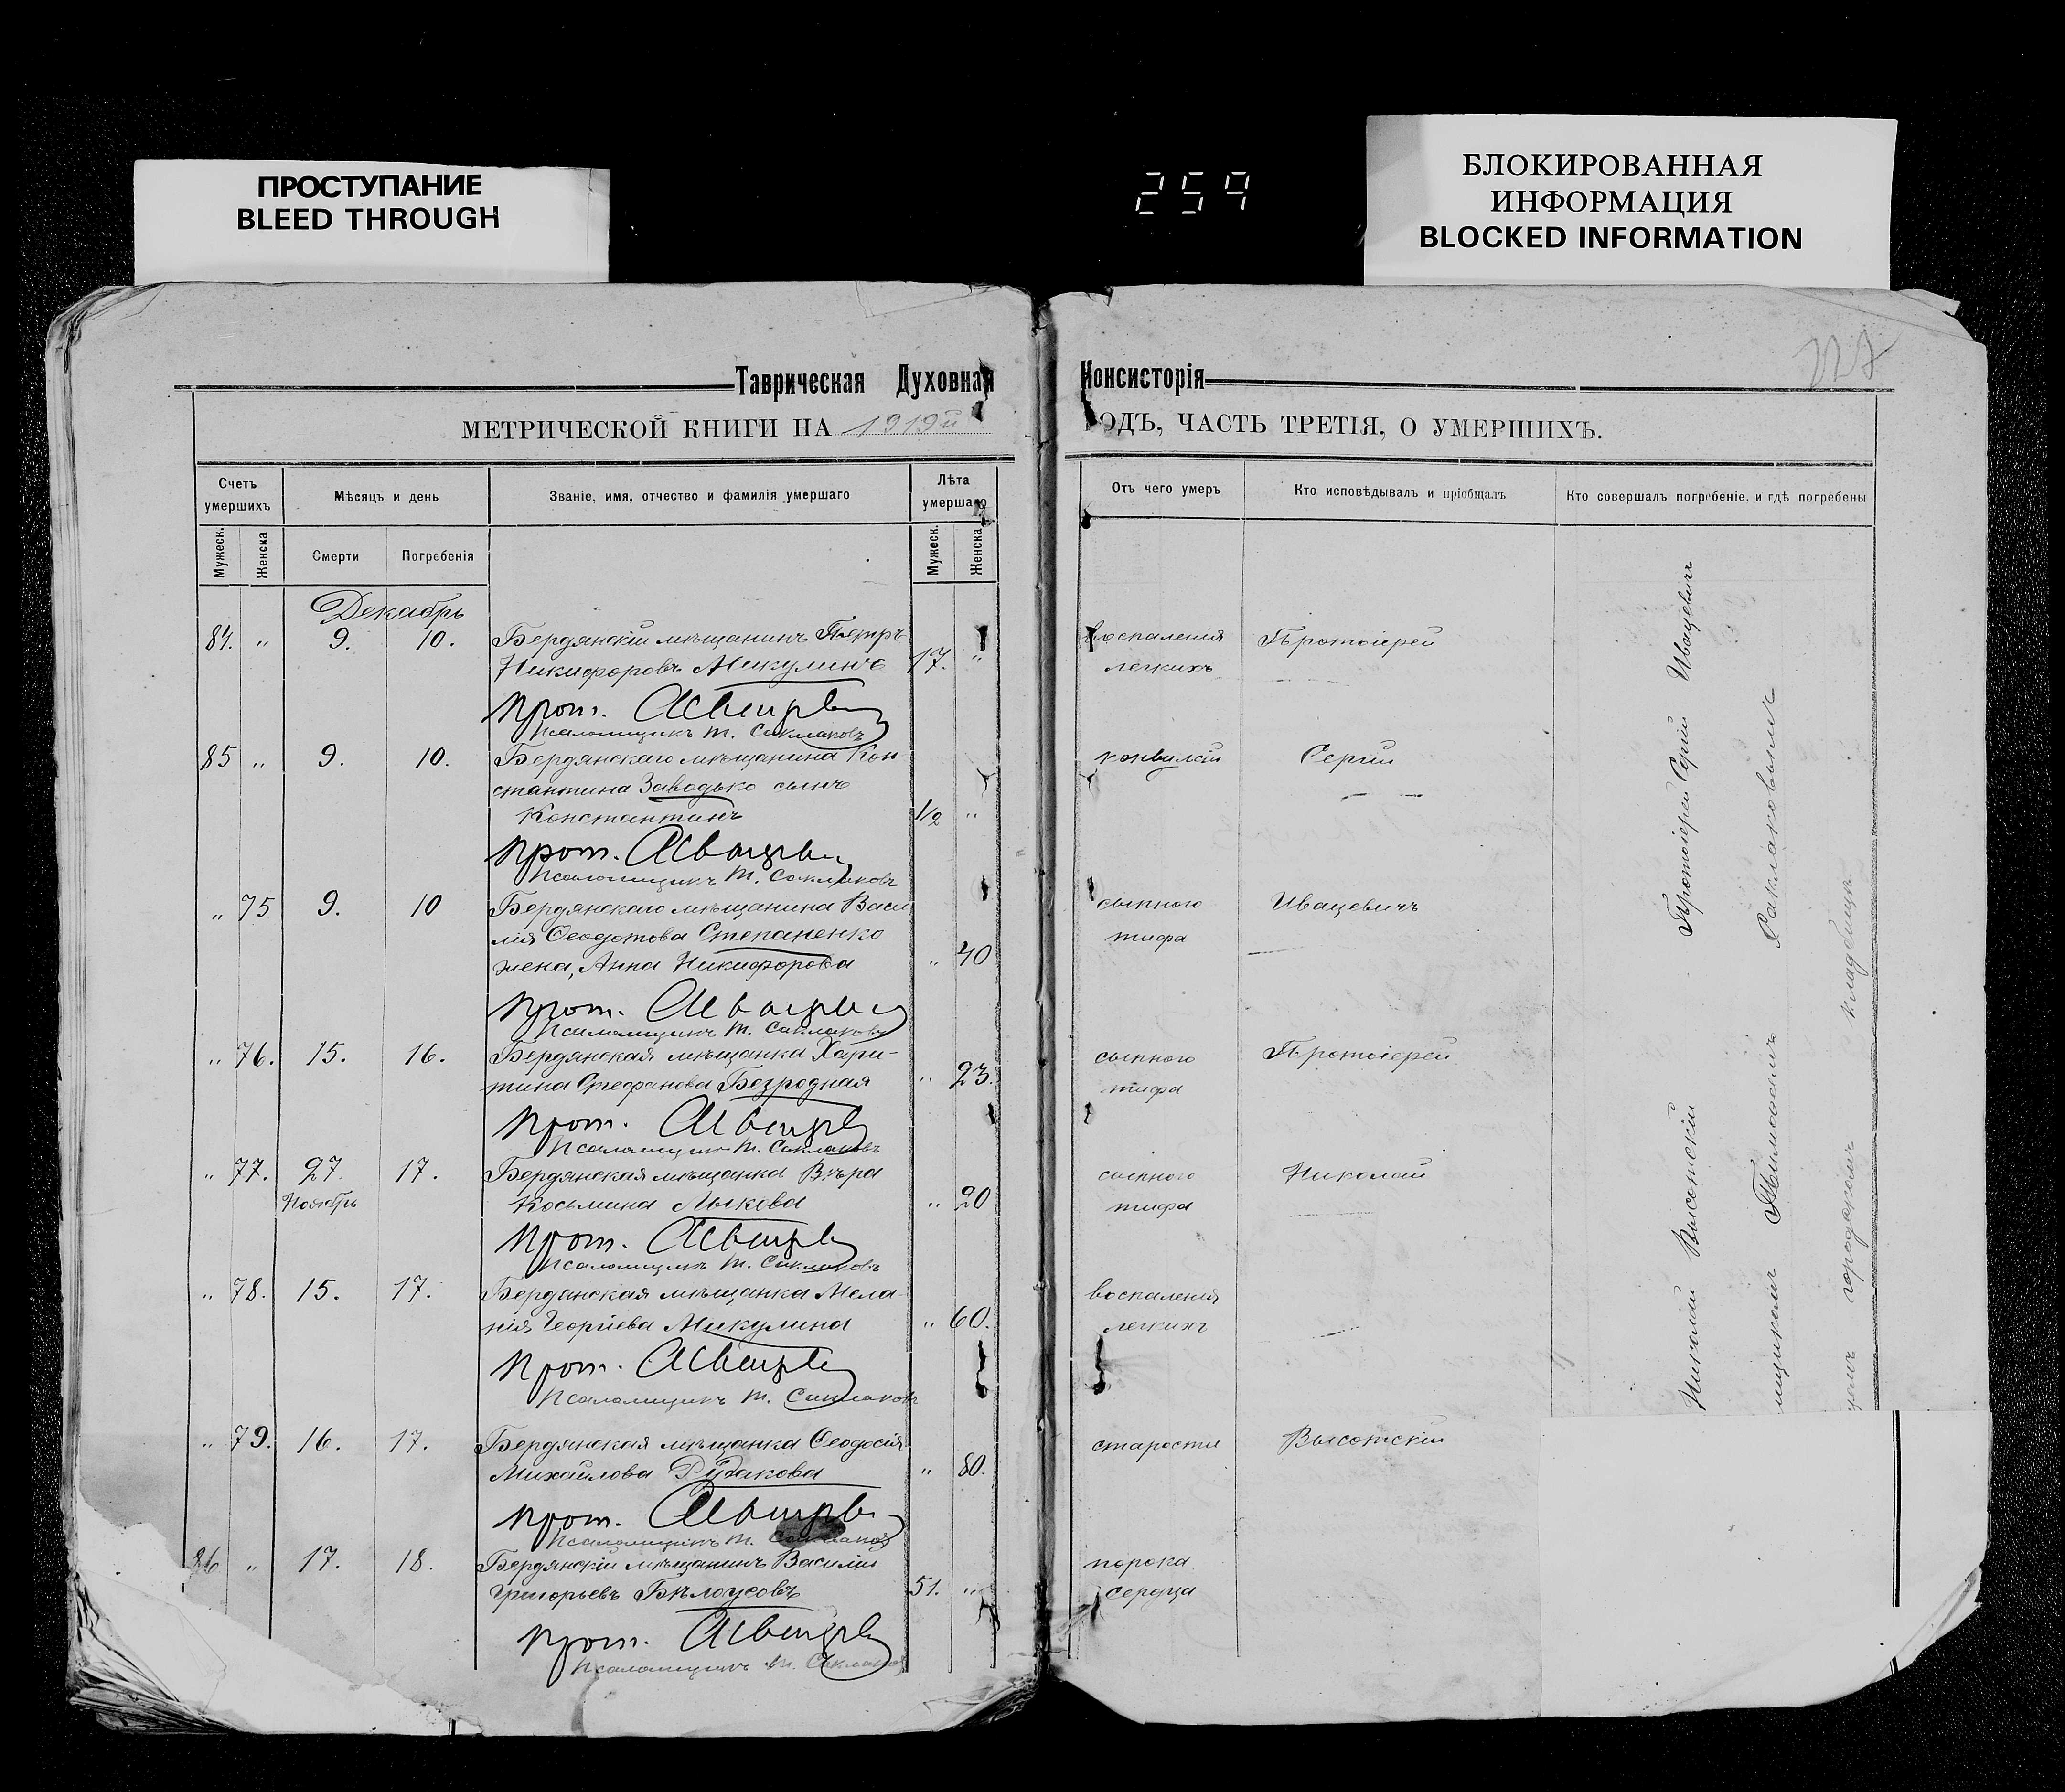 ПРОСТУПАНИЕ
BLEED THROUGH
259
БЛОКИРОВАННАЯ
ИНФОРМАЦИЯ
BLOCKED INFORMATION
227
Таврическая Духовная Консисторія
МЕТРИЧЕСКОЙ КНИГИ НА 1919й ГОДЪ, ЧАСТЬ ТРЕТІЯ, О УМЕРШИХЪ.
Счетъ умершихъ
Мѣсяцъ и день
Званіе, имя, отчество и фамилія умершаго
Лѣта умершаго
Отъ чего умеръ
Кто исповѣдывалъ и пріобщалъ
Кто совершалъ погребеніе, и гдѣ погребены
Мужеск.
Женска
Смерти
Погребенія
Мужеск.
Женска
Декабрь
84. " 9. 10. Бердянскій мѣщанинъ Петръ воспаленія Протоіерей
Никифоровъ Микулинъ 17. " легкихъ
Прот.
Псаломщикъ Т. Саклаковъ
85 " 9. 10. Бердянскаго мѣщанина Кон Сергій
стантина Заводько сынъ
Константинъ 1/2 "
Прот.
Псаломщикъ Т. Саклаковъ
" 75 9. 10 Бердянскаго мѣщанина Васи сыпного Ивацевичъ
лія Ѳеодотова Степаненко тифа
жена, Анна Никифорова " 40
Прот.
Псаломщикъ Т. Саклаковъ
" 76. 15. 16. Бердянская мѣщанка Хари- сыпного Протоіерей
тина Стефанова Безродная " 23. тифа
Прот.
Псаломщикъ Т. Саклаковъ
" 77. 27. 17. Бердянская мѣщанка Вѣра сыпного Николай
Ноябрь Косьмина Лыкова " 20 тифа
Прот.
Псаломщикъ Т. Саклаковъ
" 78. 15. 17. Бердянская мѣщанка Мела- воспаленія
нія Георгіева Микулина " 60. легкихъ
Прот.
Псаломщикъ Т. Саклаковъ
" 79. 16. 17. Бердянская мѣщанка Ѳеодосія старости Высотскій
Михайлова Рудакова " 80.
Прот.
Псаломщикъ Т. Саклаковъ
86 " 17. 18. Бердянскій мѣщанинъ Василій порока
Григорьевъ Бѣлоусовъ 51. " сердца
Прот.
Псаломщикъ Т. Саклаковъ
Николай Высотскій Протоіерей Сергій Ивацевичъ
мщикомъ Тимоѳеемъ Саклаковымъ
городскомъ кладбищѣ